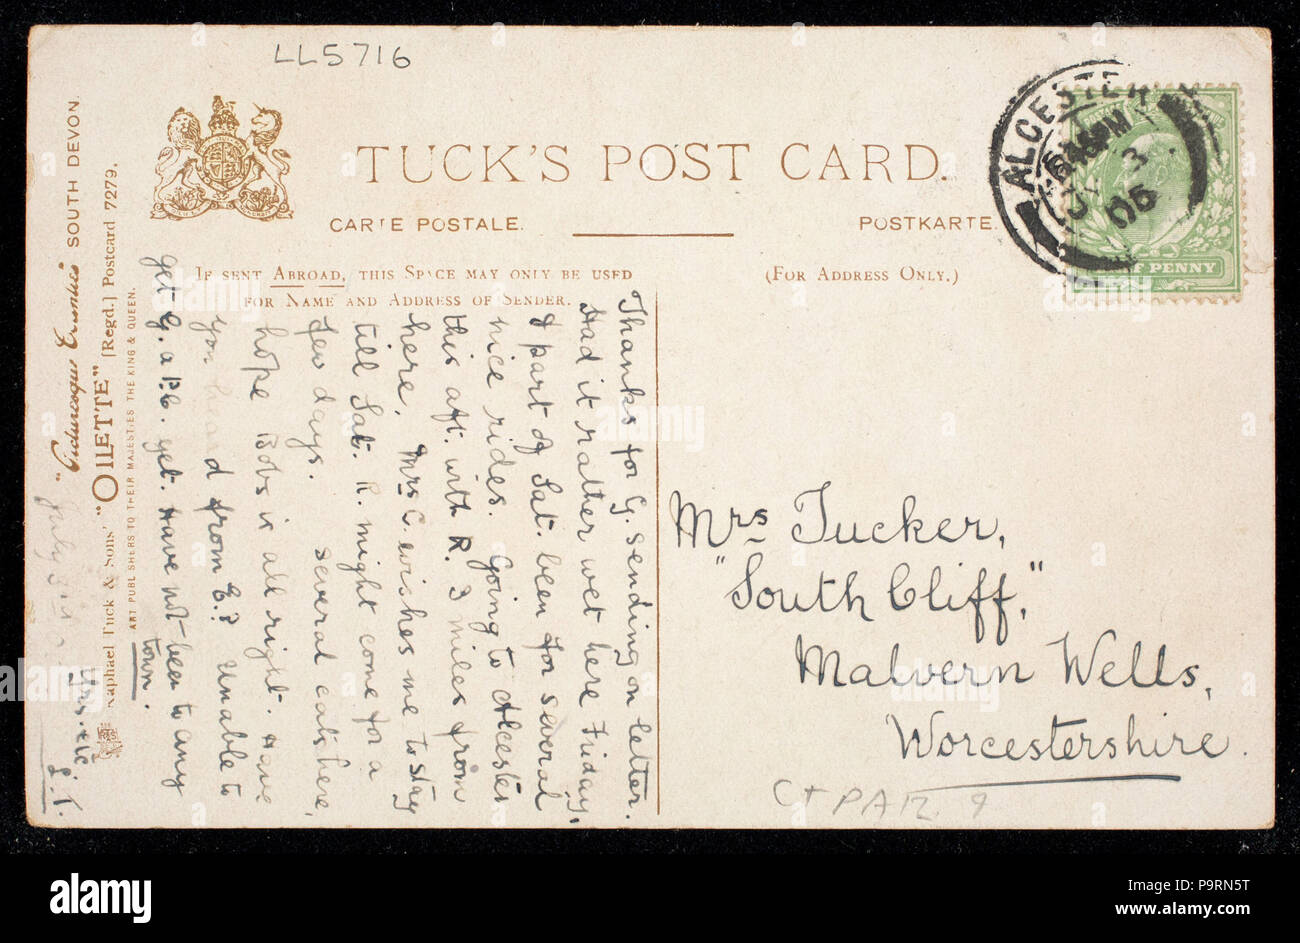 LL5716
TUCK'S POST CARD.
CARTE POSTALE.
POSTKARTE.
IF SENT ABROAD, THIS SPACE MAY ONLY BE USED
FOR NAME AND ADDRESS OF SENDER.
(FOR ADDRESS ONLY.)
ALCESTER
JY 3
05
HALF PENNY
Thanks for G. sending on letter.
Had it rather wet here Friday,
& part of Sat. been for several
nice rides. Going to Alcester
this aft. with R. 3 miles from
here. Mrs C. wishes me to stay
till Sat. R. might come for a
few days. several cats here,
hope Bobs is all right. Have
you heard from E.? Unable to
get G. a P.C. yet. Have not been to any
town.
Yrs. etc
L.T.
July
Mrs Tucker,
"South Cliff,"
Malvern Wells,
Worcestershire.
C+PAR 9
"Picturesque Counties" SOUTH DEVON.
Raphael Tuck & Sons' "OILETTE" [Regd.] Postcard 7279.
ART PUBLISHERS TO THEIR MAJESTIES THE KING & QUEEN.
alamy
Image ID: P9RN5T
www.alamy.com